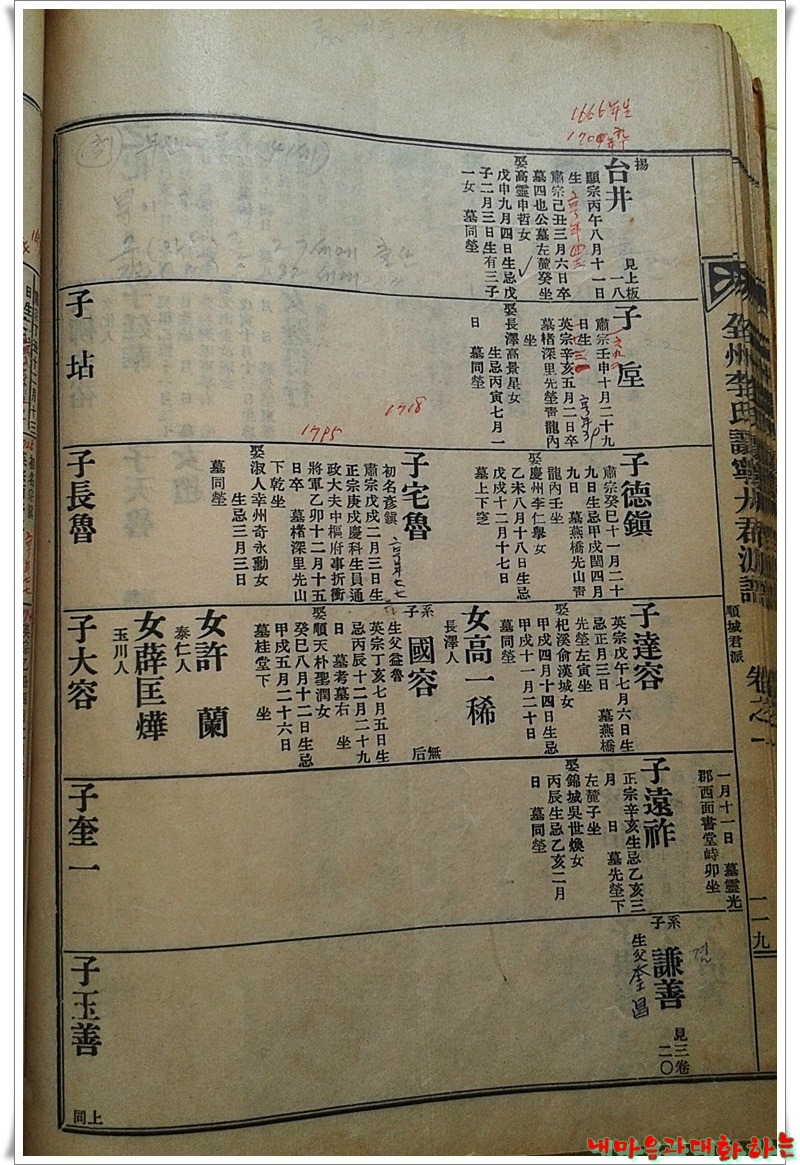 全州李氏譜寧大君派譜
順城君派
卷之一
一一九
1666年生
揚
台井
見上板
一八
顯宗丙午八月十一日
生
肅宗己丑三月六日卒
墓四也公墓左麓癸坐
娶高靈申哲女
戊申九月四日生忌戊
子二月三日生有三子
一女 墓同塋
子垕
肅宗壬申十月二十九
日生
英宗辛亥五月二日卒
墓楮深里先塋靑龍內
坐
娶長澤高景星女
生忌丙寅七月一
日 墓同塋
子坫
1718
1795
子德鎭
肅宗癸巳十一月二十
九日生忌甲戌閏四月
九日 墓燕橋先山靑
龍內壬坐
娶慶州李仁擧女
乙未八月十八日生忌
戊戌十二月十七日
墓上下窆
子宅魯
初名彥鎭
肅宗戊戌二月三日生
正宗庚戌慶科生員通
政大夫中樞府事折衝
將軍乙卯十二月十五
日卒 墓楮深里先山
下乾坐
娶淑人幸州奇永勳女
生忌三月三日
墓同塋
子長魯
子達容
英宗戊午七月六日生
忌正月三日 墓燕橋
先塋左寅坐
娶杞溪俞漢城女
甲戌四月十四日生忌
甲戌十一月二十日
墓同塋
女高一稀
長澤人
系子
國容
無后
生父益魯
英宗丁亥七月五日生
忌丙辰十二月二十九
日 墓考墓右 坐
娶順天朴聖潤女
癸巳八月十二日生忌
甲戌五月二十六日
墓桂堂下 坐
女許蘭
泰仁人
女薛匡燁
玉川人
子大容
一月十一日 墓靈光
郡西面書堂峙卯坐
子遠祚
正宗辛亥生忌乙亥三
月 日 墓先塋下
左麓子坐
娶錦城吳世煥女
丙辰生忌乙亥二月
日 墓同塋
子奎一
系子
謙善
겸
生父奎昌
見三卷
二〇
子玉善
上同
내마음과대화하는